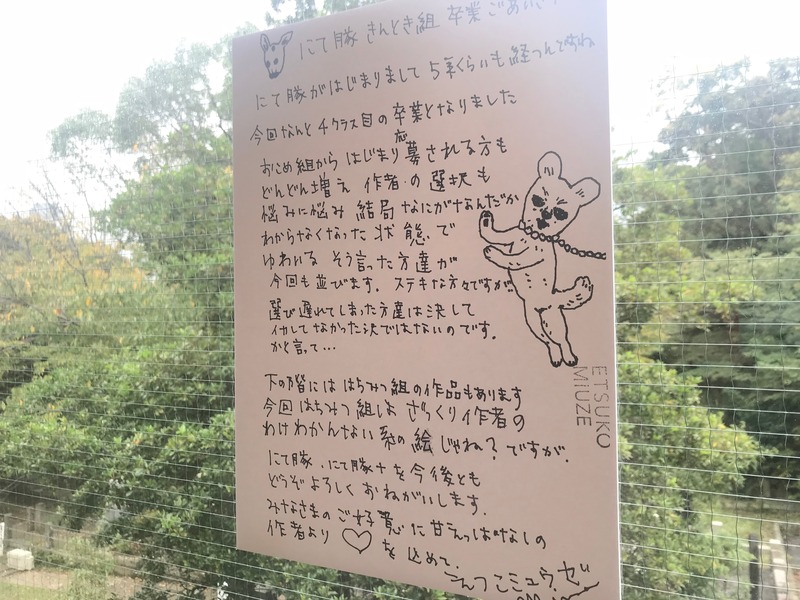 にて豚 きんとき組 卒業ごあいさつ
にて豚がはじまりまして 5年くらいも経つんですね
今回なんと4クラス目の卒業となりました
おこめ組から はじまり 応募される方も
どんどん増え 作者の選択も
悩みに悩み 結局なにがなんだか
わからなくなった状態で
ゆわいる そう言った方達が
今回も並びます。ステキな方々ですが
選び遅れてしまった方達は決して
イカしてなかった訳ではないのです。
かと言って…
下の階には はちみつ組の作品もあります
今回はちみつ組は ざっくり作者の
わけわかんない系の絵じゃね？ですが、
にて豚、にて豚+を今後とも
どうぞよろしく おねがいします。
みなさまのご好意に甘えっぱなしの
作者より ♡を込めて、
えつこミュウゼ
ETSUKO
MiUZE